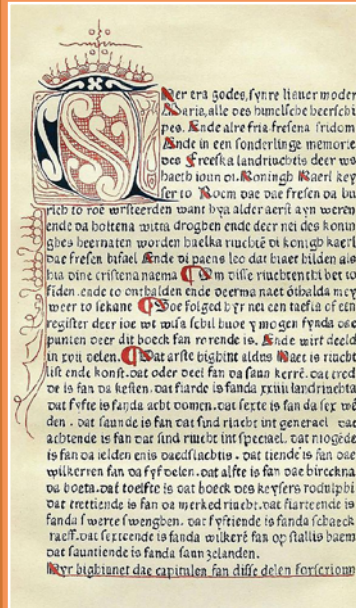 Ter era godes, synre liauer moder
Maria, alle des himelsche heerschi
pes. Ende alre fria fresena fridom
Ende in een sonderlinge memorie
des Freeska landriuchtis deer ws
haeth ioun di. Koningh Kaerl key
ser to Roem dae dae fresen da bu
rich to roe wrsteerden want hya alder aerst ayn weren
ende da holtena witta droghen ende deer nei des konin
ghes heernaten worden haelka riuchte di konigh kaerl
dae fresen bifael Ende di paens leo dat hiaet hilden als
hia dine cristena naema Om disse riuchten thi bet to
fiden. ende to onthalden ende deerma naet othalda mey
weer to sekane Soe folged hyr nei een taefla of een
register deer ioe wt wisa schil huoe y mogen fynda oe
punten deer dit boeck fan rorende is. Ende wirt deeld
in xvii delen. Dat arste bighint aldus Haet is riucht
list ende konst. dat oder deel fan da saun kerre. dat tred
de is fan da kesten. dat fiarde is fanda xxiiii landriuchta
dat fyfte is fanda acht domen. dat sexte is fan da sex we
den. dat saunde is fan dat sind riucht int generael dae
achtende is fan dat sind riucht int speciael. dat niogede
is fan da ielden enis daedslachtis. dat tiende is fan dae
wilkerren fan da fyf delen. dat alfte is fan dae bireckna
da boeta. dat toelfte is dat boeck des keysers rodulphi
dat trettiende is fan da merked riucht. dat fiarteende is
fanda swerre swengben. dat fyftiende is fanda schaeck
raeff. dat sexteende is fanda wilkere fan opstallis baem
dat sauntiende is fanda saun zelanden.
Hyr bighinnet dae capitulen fan disse delen forscrioun